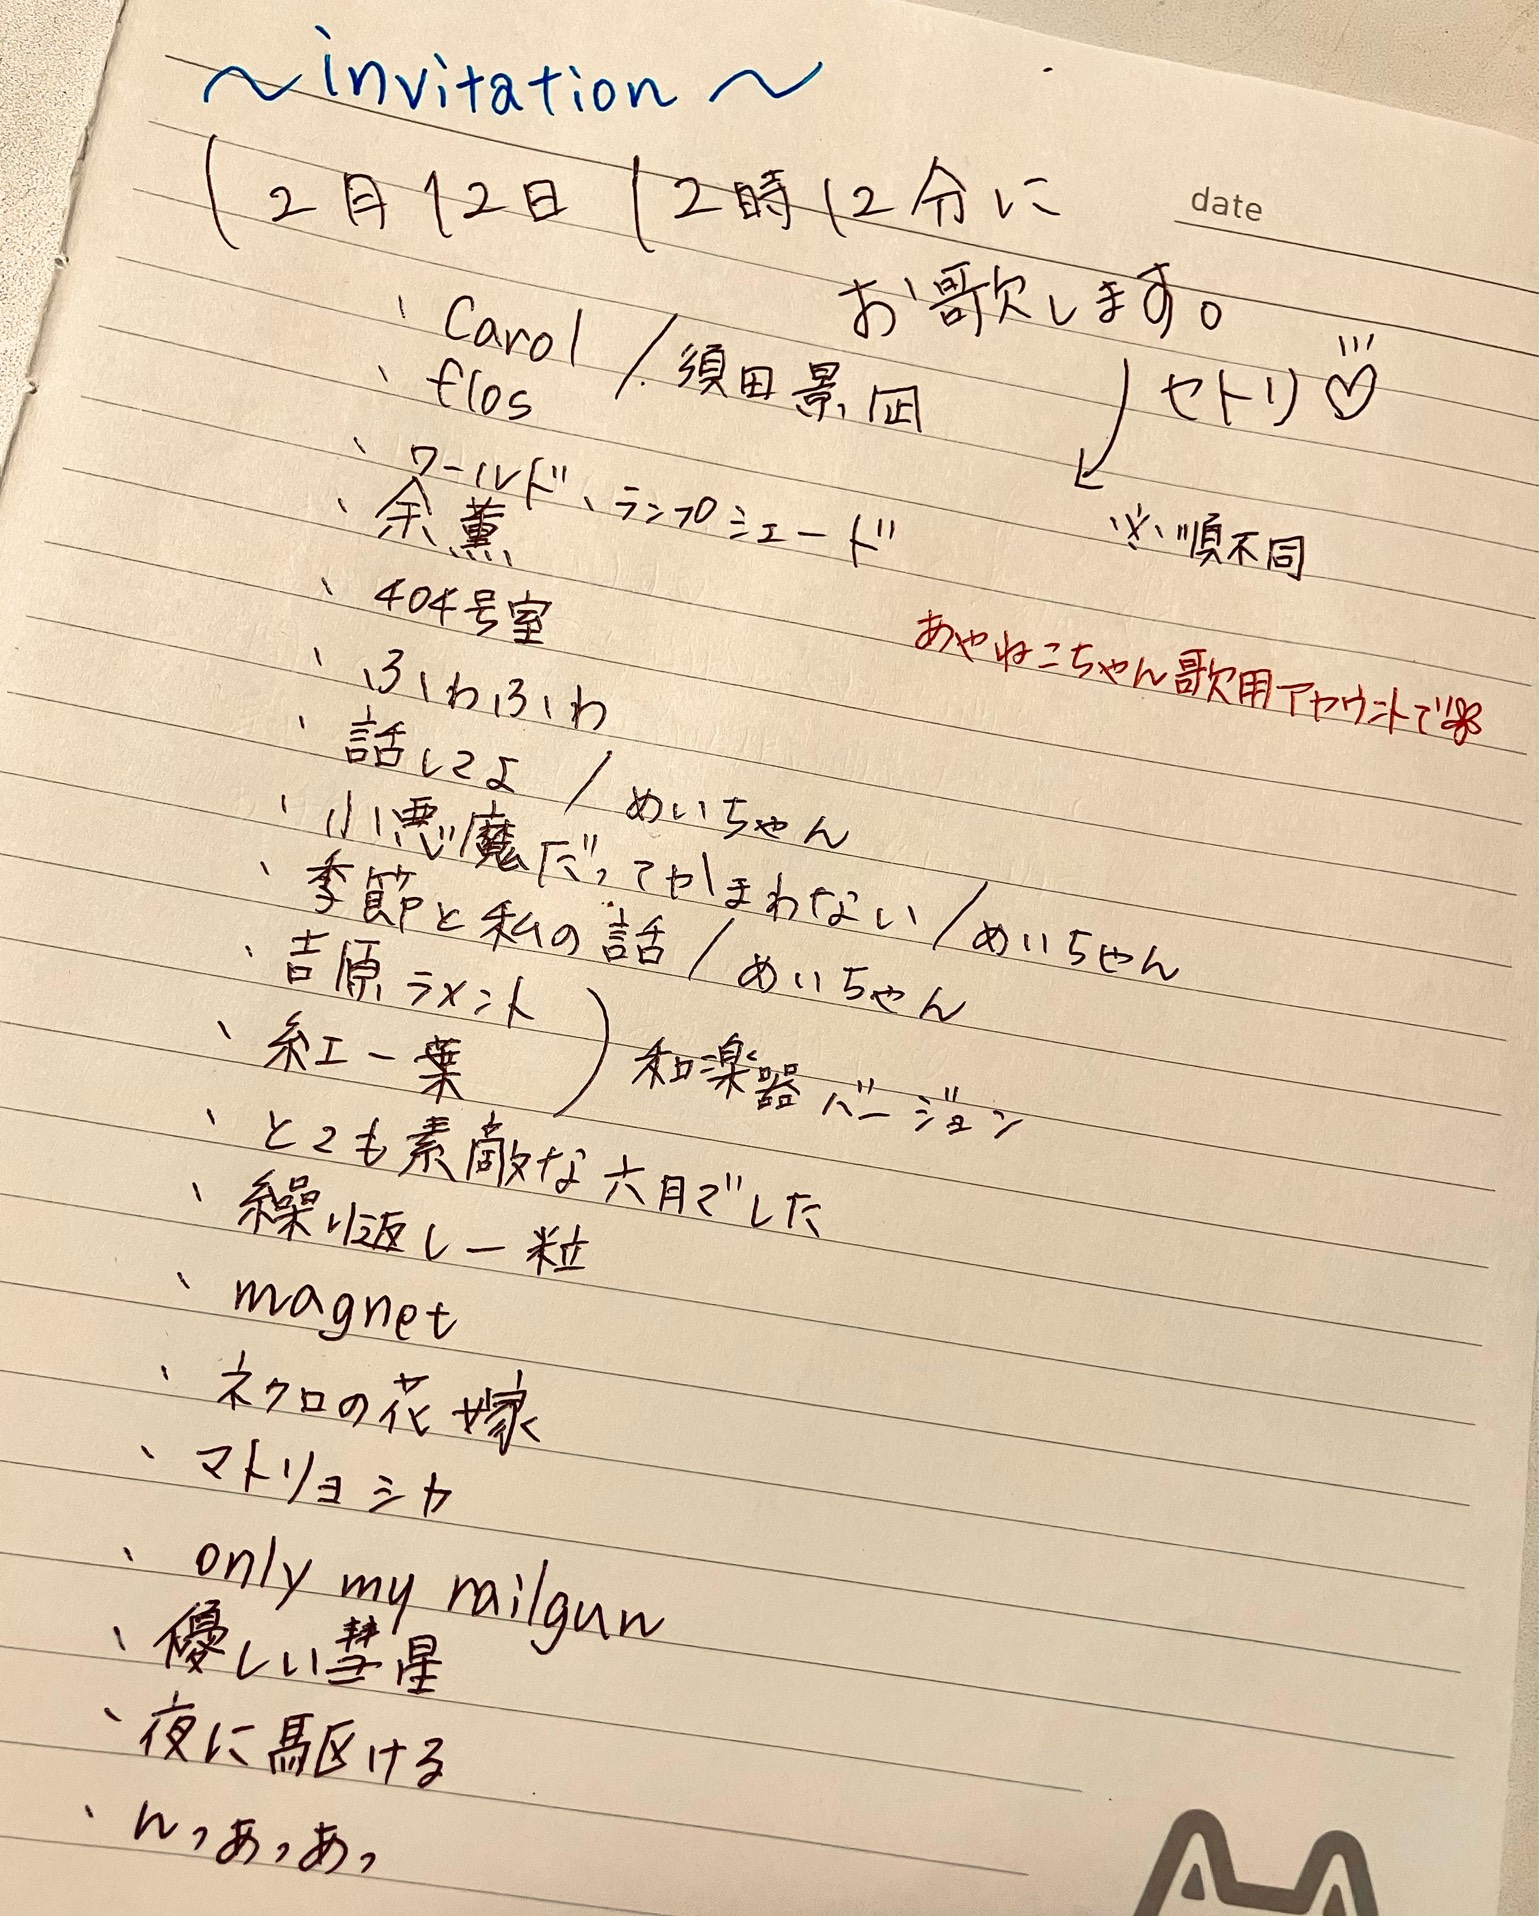 〜invitation〜
12月12日12時12分に
date
お歌します。
セトリ♡
※順不同
あやねこちゃん歌用アカウントで
・Carol/須田景凪
・flos
・ワールド・ランプシェード
・余薫
・404号室
・ふわふわ
・話してよ/めいちゃん
・小悪魔だってかまわない/めいちゃん
・季節と私の話/めいちゃん
・吉原ラメント
・紅一葉
)和楽器バージョン
・とても素敵な六月でした
・繰り返し一粒
・magnet
・ネクロの花嫁
・マトリョシカ
・only my railgun
・優しい彗星
・夜に駆ける
・んっあっあっ